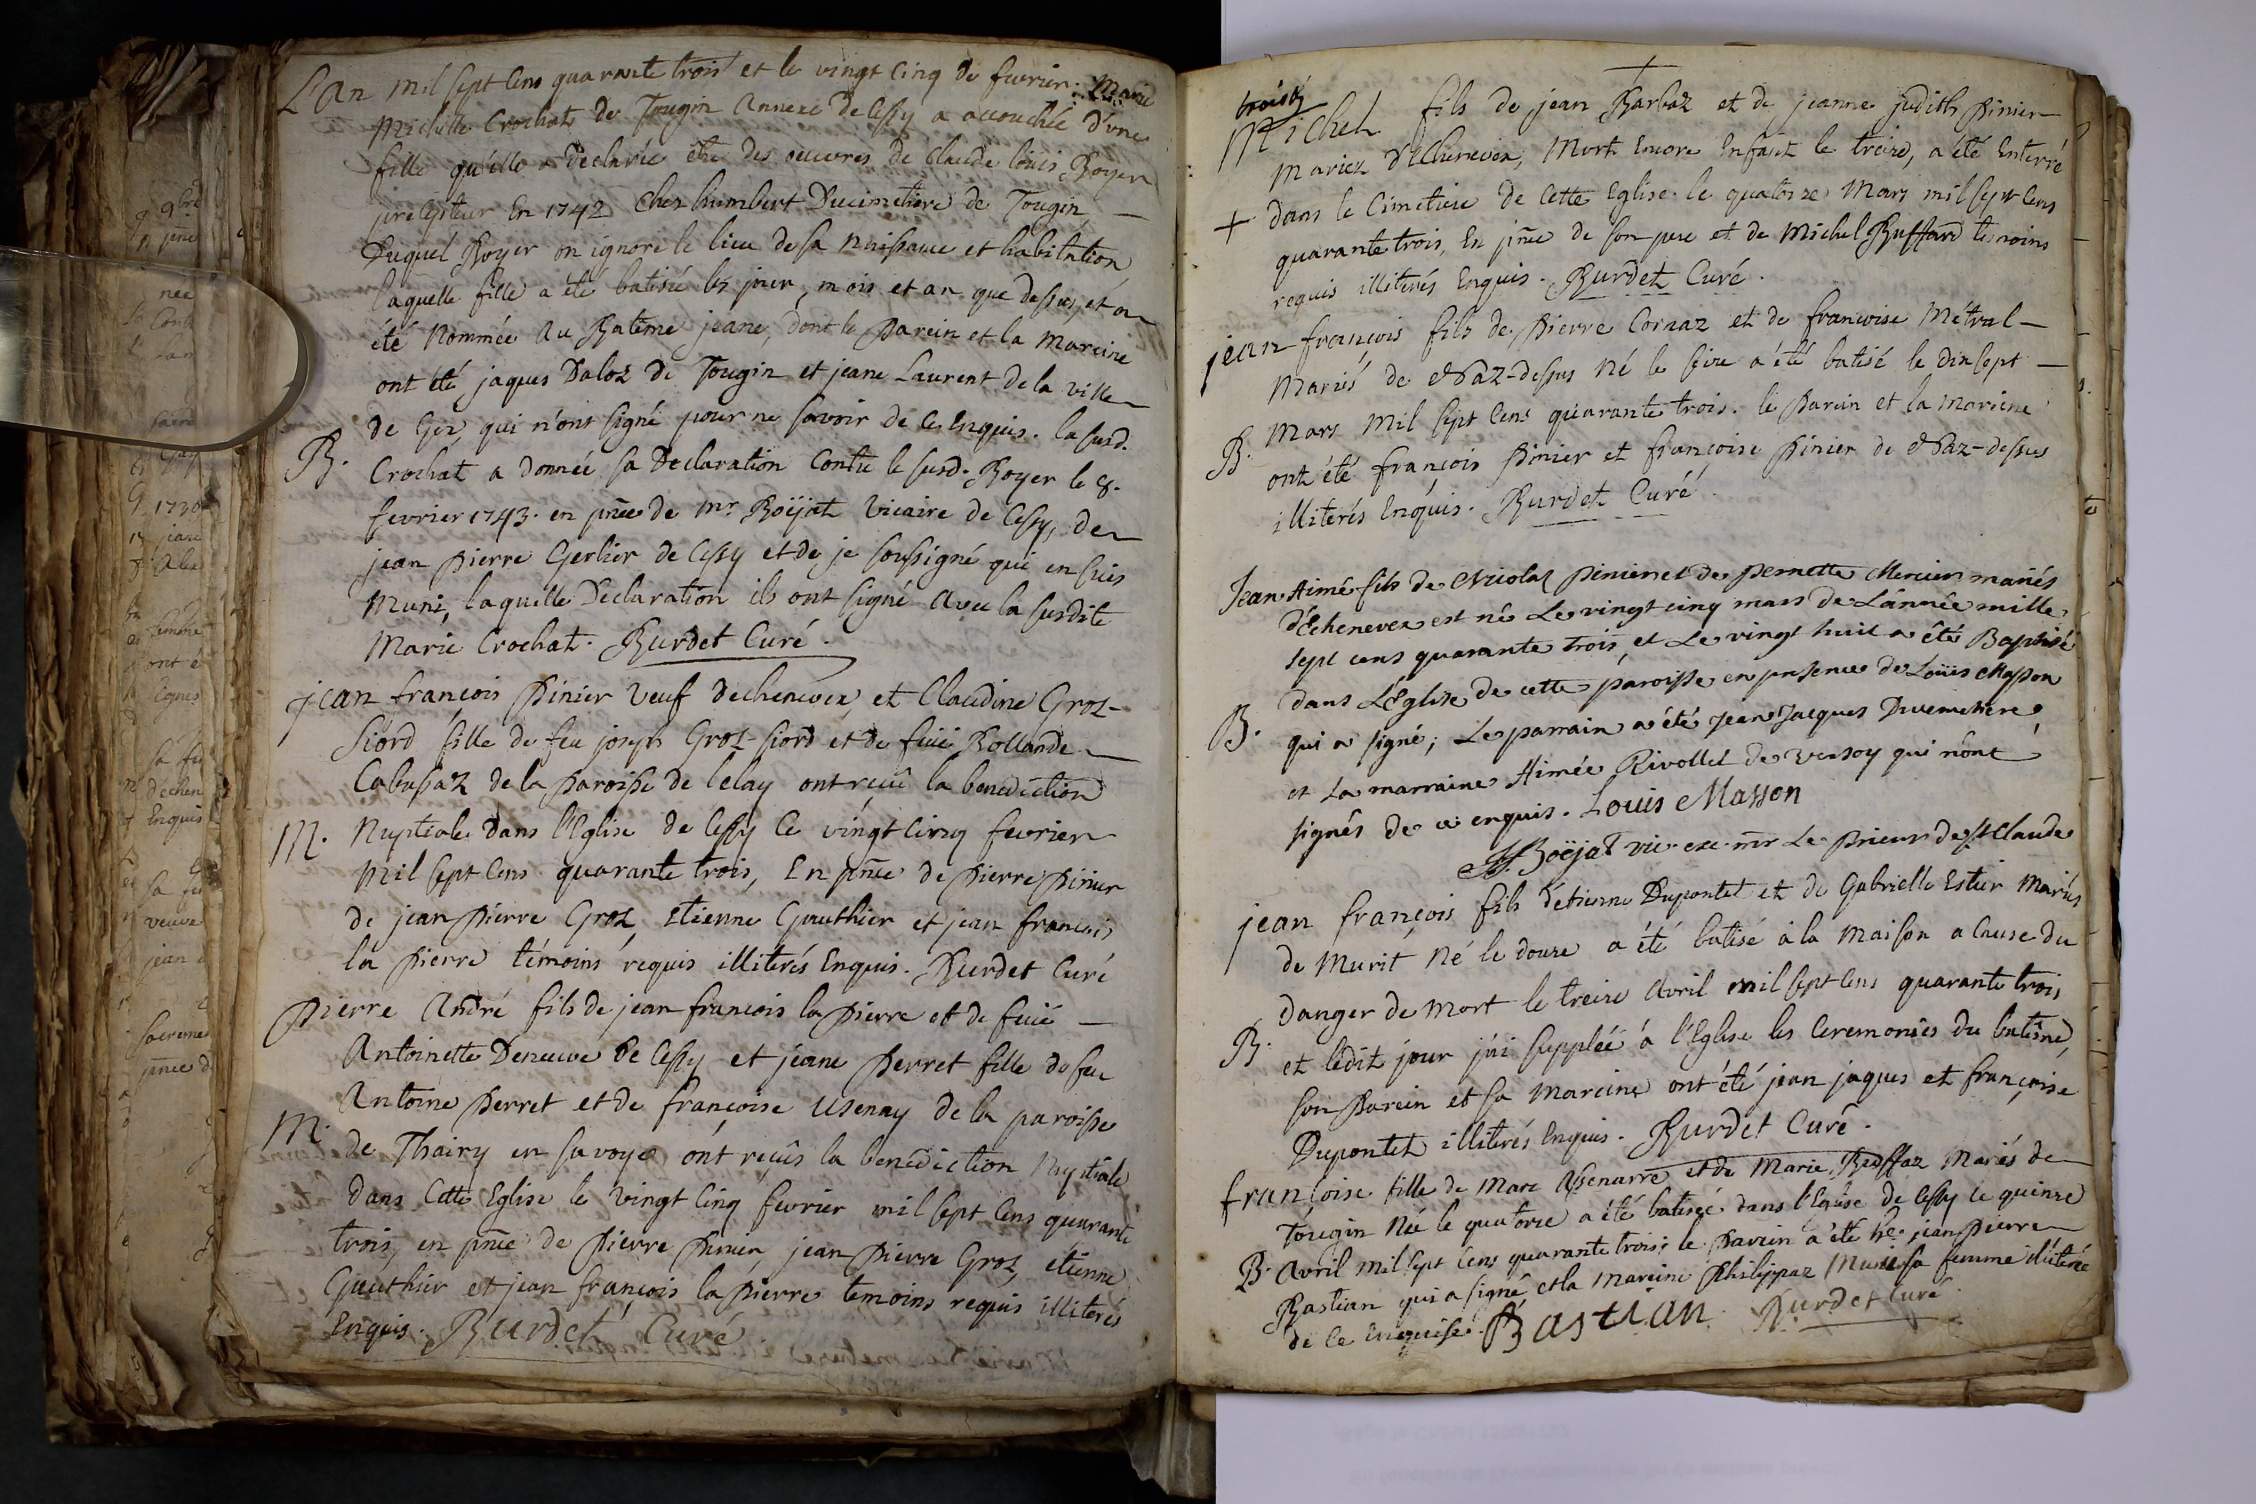 L'an mil sept cens quarante trois et le vingt cinq de fevrier: Marie
Michelle Crochat de Tougin annexe de Cessy a accouchée d'une
fille qu'elle a declarée être des oeuvres de Claude louis Royer
precepteur en 1742 chez humbert Ducimetiere de Tougin —
Duquel Royer on ignore le lieu de sa naissance et habitation
laquelle fille a été batisée les jour, mois et an que dessus, et a
été nommée au Batême jeane, dont le Parein et la Mareine
ont été jaques Daloz de Tougin et jeane Laurent de la ville
de Gex, qui n'ont signé pour ne savoir de ce enquis. la susd.
B.
Crochat a donnée sa Declaration contre le susd. Royer le 8.
fevrier 1743. en pñce de mr. Boëjat vicaire de Cessy, de
jean pierre Gerlier de Cessy et de je soussigné qui en suis
muni, laquelle Declaration ils ont signé avec la susdite
Marie Crochat. Burdet Curé.
jean françois Pinier veuf dechenevex, et Claudine Groz-
siord fille de feu joseph Groz-siord et de feüe Rollande
Cabussaz de la paroisse de lelay ont reçû la benediction
M.
Nuptiale dans l'Eglise de Cessy le vingt cinq fevrier
mil sept cens quarante trois, En pñce de pierre Pinier
de jean pierre Groz, Etienne Gauthier et jean françois
la pierre témoins requis illiterés Enquis. Burdet Curé
pierre andré fils de jean françois la pierre et de feüe —
Antoinette Deneuve de Cessy et jeane Perret fille de feu
Antoine Perret et de françoise Usenay de la paroisse
M.
de Thairy en savoye ont reçûs la benediction Nuptiale
dans cette Eglise le vingt cinq fevrier mil sept cens quarante
trois, en pñce de pierre Pinier, jean pierre Groz, etienne
Gauthier et jean françois la pierre temoins requis illiterés
Enquis. Burdet Curé.
Michel fils de jean Barbaz et de jeanne judith Pinier —
Mariez d'Echenevex, Mort Encore Enfant le treize, a été Enterré
+ dans le Cimetiere de cette Eglise le quatorze Mars mil sept cens
quarante trois, En pñce de son pere et de Michel Buffard temoins
requis illiterés Enquis. Burdet Curé.
jean françois fils de pierre Cornaz et de françoise Métral —
Mariés de Naz-dessus né le seize a été batisé le dix sept —
Mars mil sept cens quarante trois. le parein et la mareine
B.
ont été françois Pinier et françoise Pinier de Naz-dessus
illiterés Enquis. Burdet Curé.
Jean Aimé fils de Nicolas Pinier et de pernette Mercier mariés
d'Echenevex est né Le vingt cinq mars de L'année mille
sept cens quarante trois, et Le vingt huit a été Baptisé
dans L'Eglise de cette paroisse en presence de Loüis Masson
B.
qui a signé; Le parrain a été jean Jacques Ducimetiere,
et La marraine Aimée Rivollet de versoy qui n'ont
signés de ce enquis. Louis Masson
Boëjat vic. exc. mr Le prieur de St Claude
jean françois fils d'etienne Dupontet et de Gabrielle Estier Mariés
de Murit né le douze a été batisé à la maison a cause du
danger de mort le treize avril mil sept cens quarante trois
B.
et ledit jour j'ai suppléé à l'Eglise les Ceremonies du batême,
son parein et sa mareine ont été jean jaques et françoise
Dupontet illiterés Enquis. Burdet Curé.
françoise fille de Marc et de Marie Buffaz Mariés de
Tougin née le quatorze a été batisée dans l'Eglise de Cessy le quinze
B. avril mil sept cens quarante trois; le parein a été he. jean pierre
Bastian qui a signé, et la mareine Philippaz sa femme illiterée
de ce enquise. Bastian Burdet Curé.